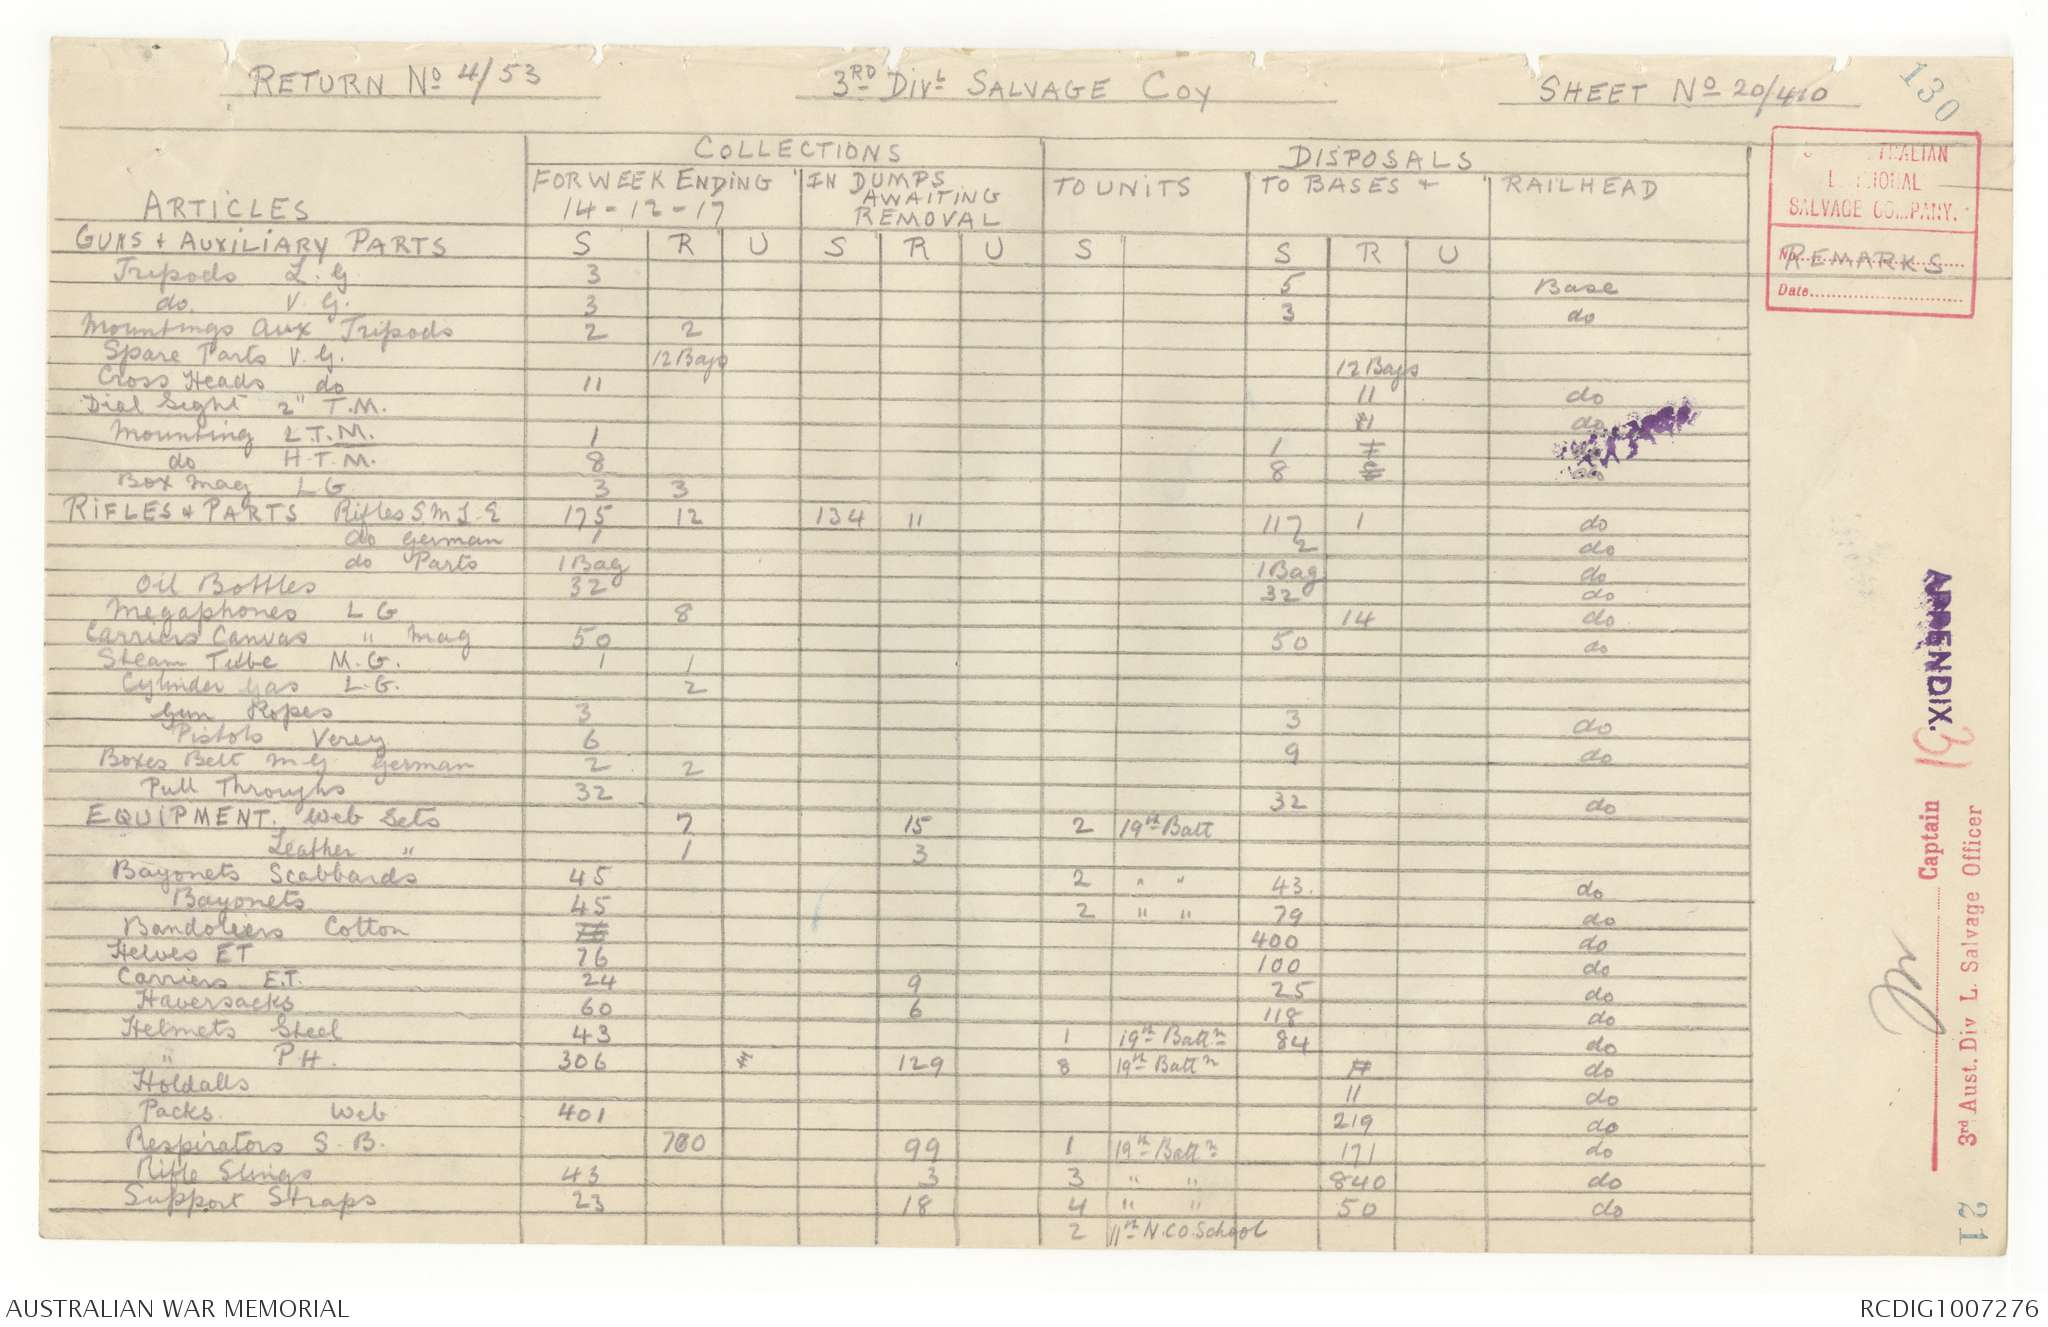 RETURN No 4/53 3RD Divl SALVAGE COY SHEET No 20/410 130
COLLECTIONS DISPOSALS
ARTICLES FOR WEEK ENDING 14-12-17 IN DUMPS AWAITING REMOVAL TO UNITS TO BASES + RAILHEAD REMARKS
GUNS + AUXILIARY PARTS S R U S R U S S R U
Tripods L.G 3 5 Base
do. V.G. 3 3 do
Mountings Aux Tripods 2 2
Spare Parts V.G. 12 Bags 12 Bags
Cross Heads do 11 11 do
Dial Sight 2" T.M. do
Mounting L.T.M. 1 1
do H.T.M. 8 8
Box Mag L G 3 3
RIFLES + PARTS Rifles S M L E 175 12 134 11 117 1 do
do German 1 2 do
do Parts 1 Bag 1 Bag do
Oil Bottles 32 32 do
Megaphones L G 8 14 do
Carriers Canvas " Mag 50 50 do
Steam Tube M.G. 1 1
Cylinder Gas L.G. 2
Gun Ropes 3 3 do
Pistols Verey 6 9 do
Boxes Belt M.G German 2 2
Pull Throughs 32 32 do
EQUIPMENT. Web Sets 7 15 2 19th Batt
Leather " 1 3
Bayonets Scabbards 45 2 " " 43. do
Bayonets 45 2 " " 79 do
Bandoliers Cotton 76 400 do
Helves ET 76 100 do
Carriers E.T. 24 9 25 do
Haversacks 60 6 118 do
Helmets Steel 43 1 19th Battn 84 do
" P.H. 306 129 8 19th Battn do
Holdalls 11 do
Packs. Web 401 219 do
Respirators S.B. 700 99 1 19th Battn 171 do
Rifle Slings 43 3 3 " " 840 do
Support Straps 23 18 4 " " 50 do
2 11th N.C.O. School
SALVAGE COMPANY.
No.
Date
APPENDIX. 19
Captain
3rd Aust. Div L. Salvage Officer
21
AUSTRALIAN WAR MEMORIAL RCDIG1007276